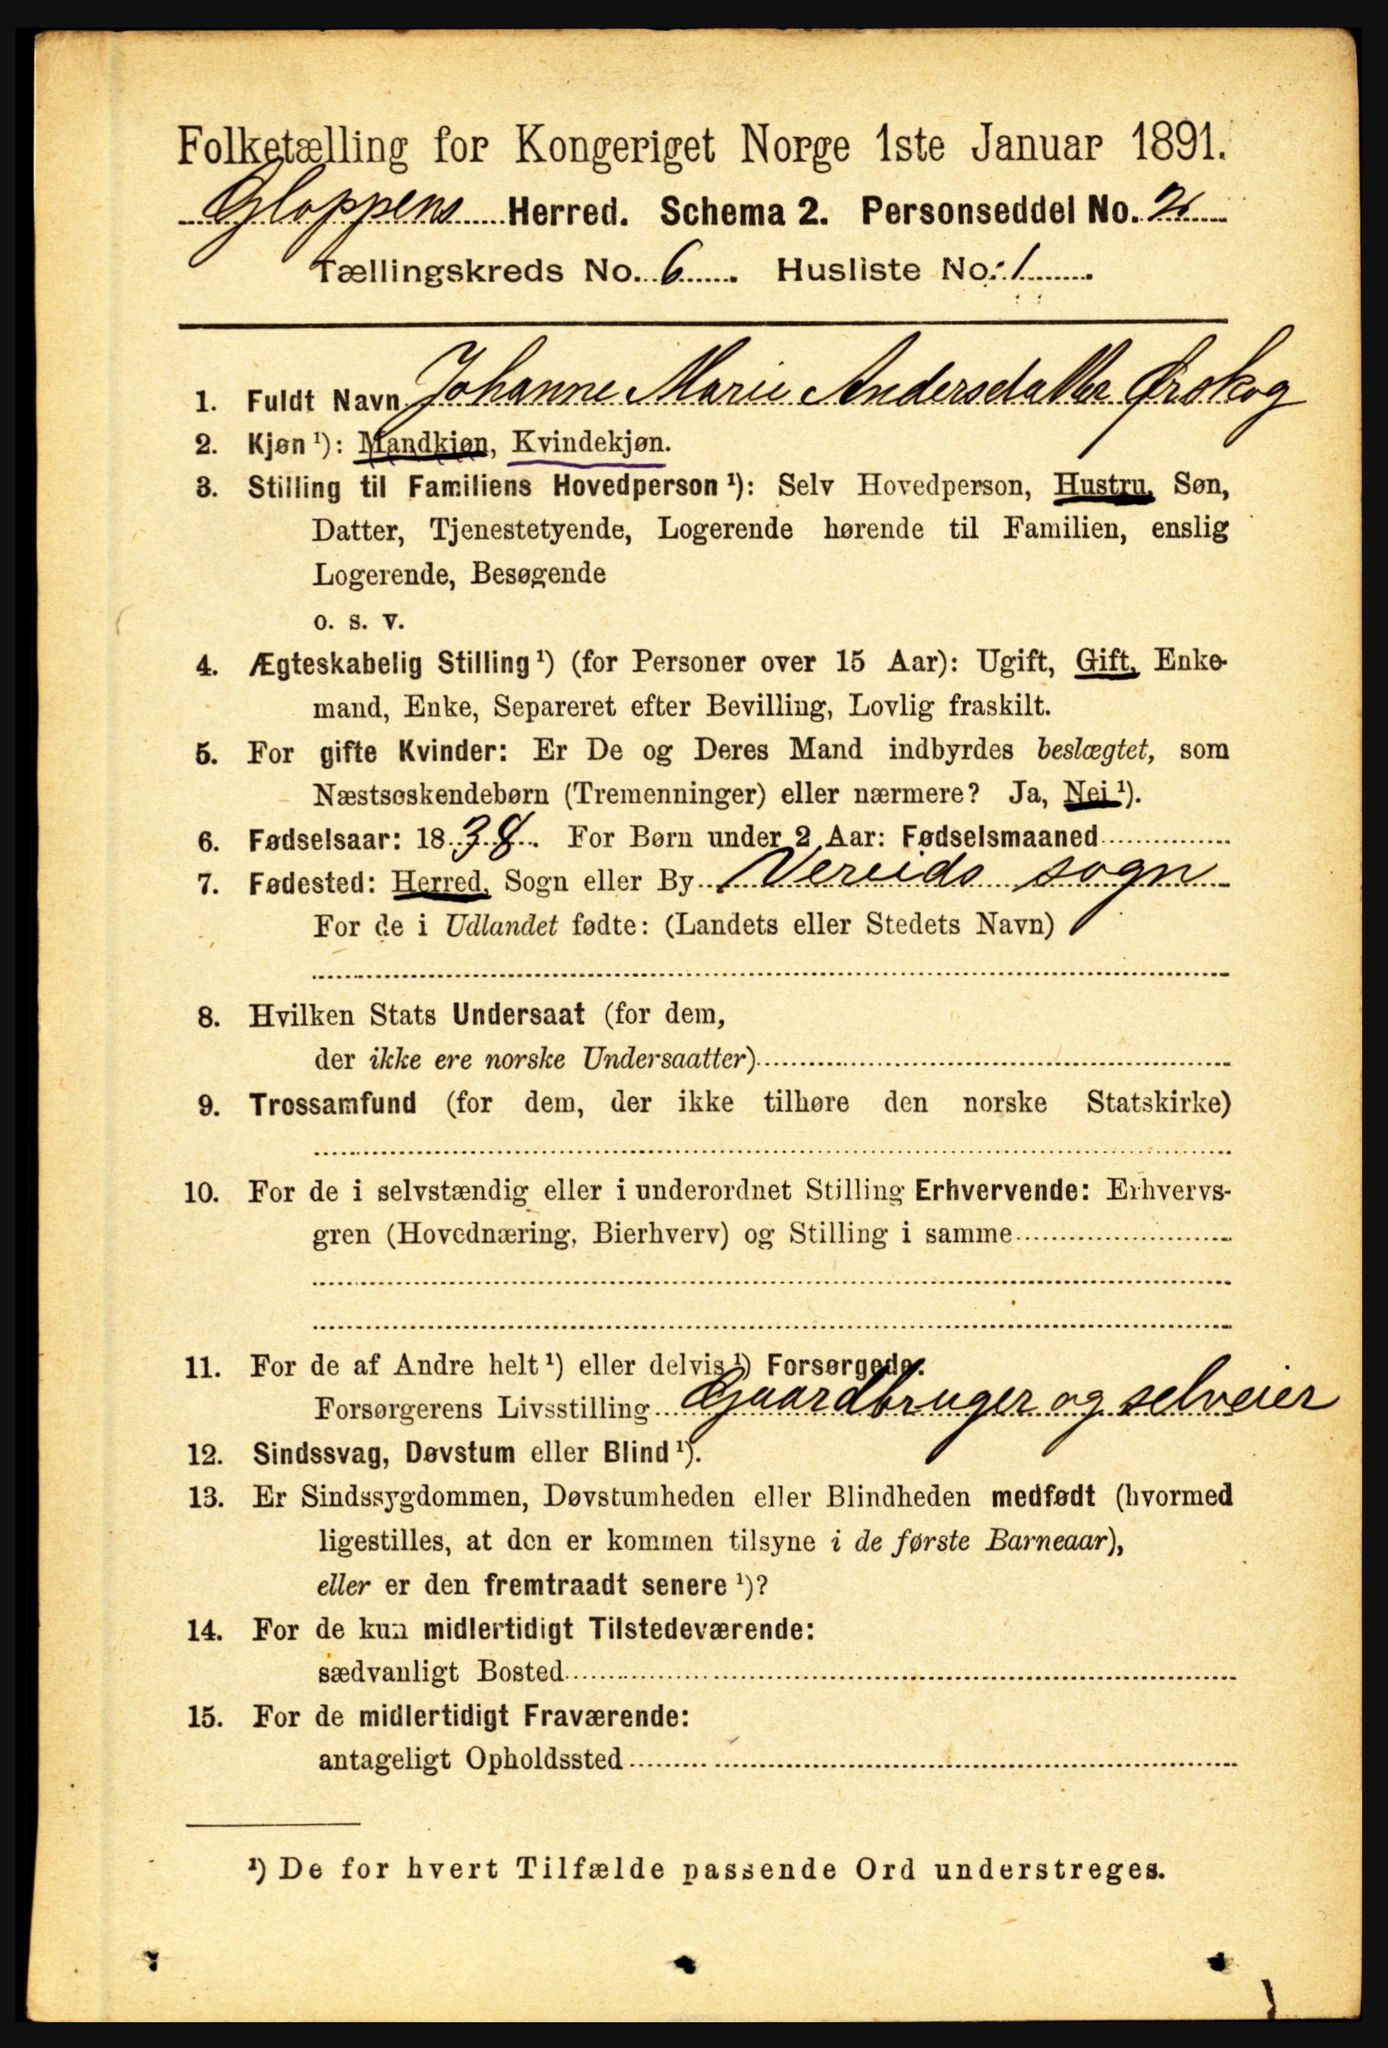 Folketælling for Kongeriget Norge 1ste Januar 1891.
Gloppens Herred. Schema 2. Personseddel No. 2
Tællingskreds No. 6. Husliste No. 1
1. Fuldt Navn Johanne Marie Andersdatter Ørskog
2. Kjøn ¹): Mandkjøn, Kvindekjøn.
3. Stilling til Familiens Hovedperson ¹): Selv Hovedperson, Hustru, Søn,
Datter, Tjenestetyende, Logerende hørende til Familien, enslig
Logerende, Besøgende
o. s. v.
4. Ægteskabelig Stilling ¹) (for Personer over 15 Aar): Ugift, Gift, Enke-
mand, Enke, Separeret efter Bevilling, Lovlig fraskilt.
5. For gifte Kvinder: Er De og Deres Mand indbyrdes beslægtet, som
Næstsøskendebørn (Tremenninger) eller nærmere? Ja, Nei ¹).
6. Fødselsaar: 1838. For Børn under 2 Aar: Fødselsmaaned
7. Fødested: Herred, Sogn eller By Vereids sogn
For de i Udlandet fødte: (Landets eller Stedets Navn)
8. Hvilken Stats Undersaat (for dem,
der ikke ere norske Undersaatter)
9. Trossamfund (for dem, der ikke tilhøre den norske Statskirke)
10. For de i selvstændig eller i underordnet Stilling Erhvervende: Erhvervs-
gren (Hovednæring, Bierhverv) og Stilling i samme
11. For de af Andre helt ¹) eller delvis ¹) Forsørgede:
Forsørgerens Livsstilling Gaardbruger og selveier
12. Sindssvag, Døvstum eller Blind ¹).
13. Er Sindssygdommen, Døvstumheden eller Blindheden medfødt (hvormed
ligestilles, at den er kommen tilsyne i de første Barneaar),
eller er den fremtraadt senere ¹)?
14. For de kun midlertidigt Tilstedeværende:
sædvanligt Bosted
15. For de midlertidigt Fraværende:
antageligt Opholdssted
¹) De for hvert Tilfælde passende Ord understreges.